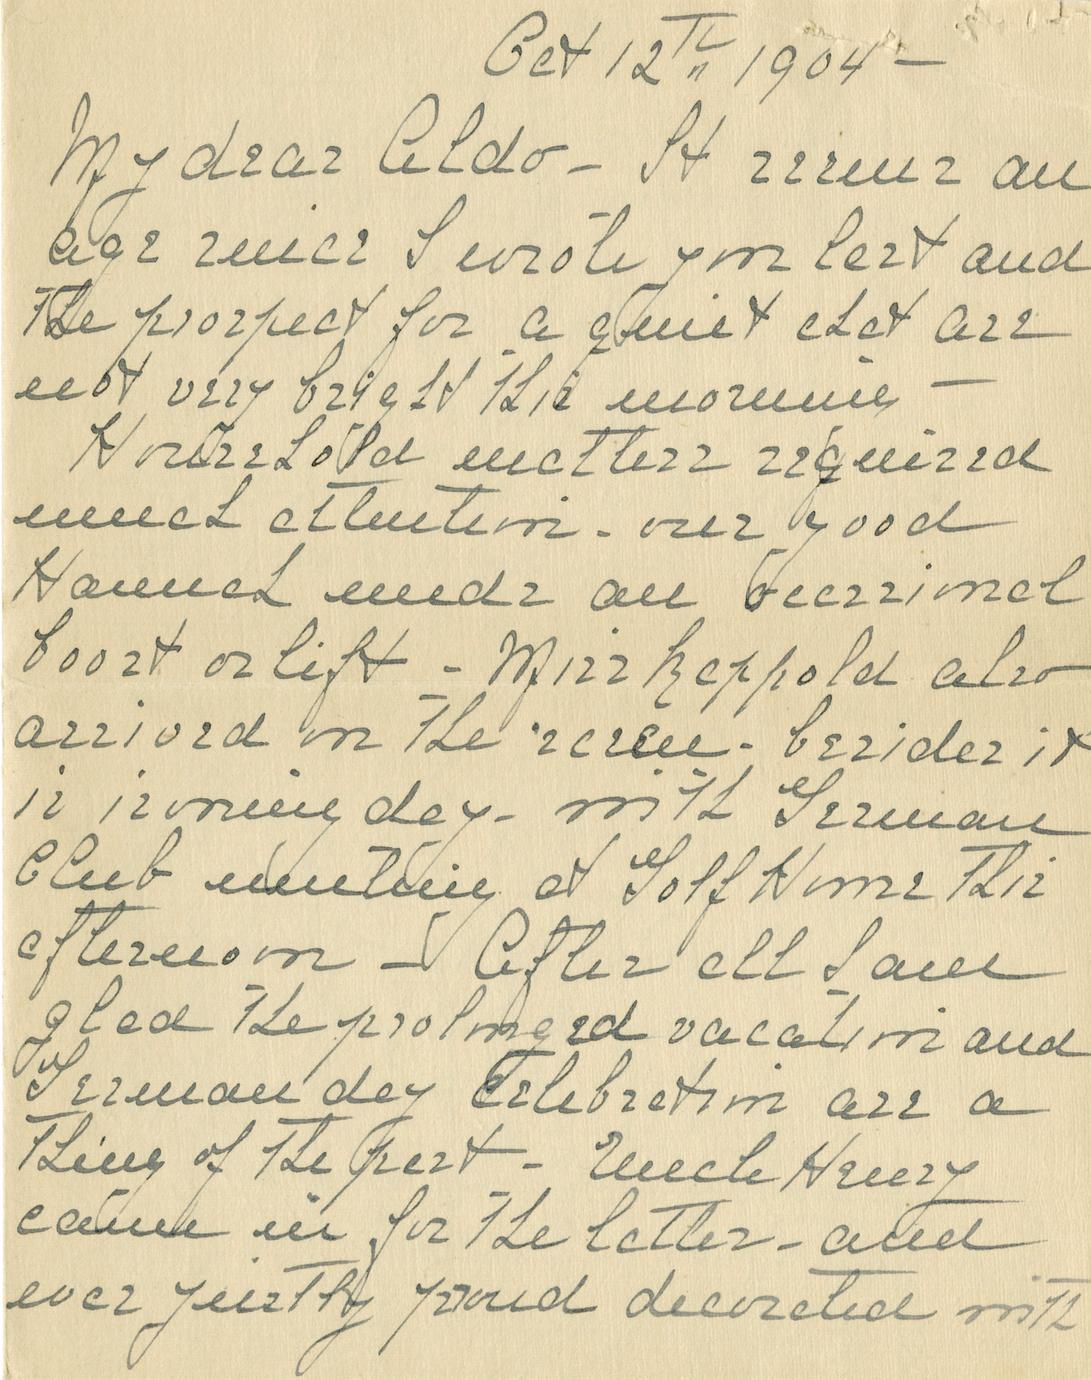 Oct 12th 1904 -
My dear Aldo - It seems an
age since I wrote you last and
the prospect for a quiet chat are
not very bright this morning -
Household matters required
much attention - our good
Hannah needs an occasional
boost or lift - Miss Keppold also
arrived on the scene - besides it
is ironing day - with German
Club meeting at Golf House this
afternoon - After all I am
glad the prolonged vacation and
German day Celebration are a
thing of the past - Uncle Henry
came in for the latter - and
was justly proud decorated with